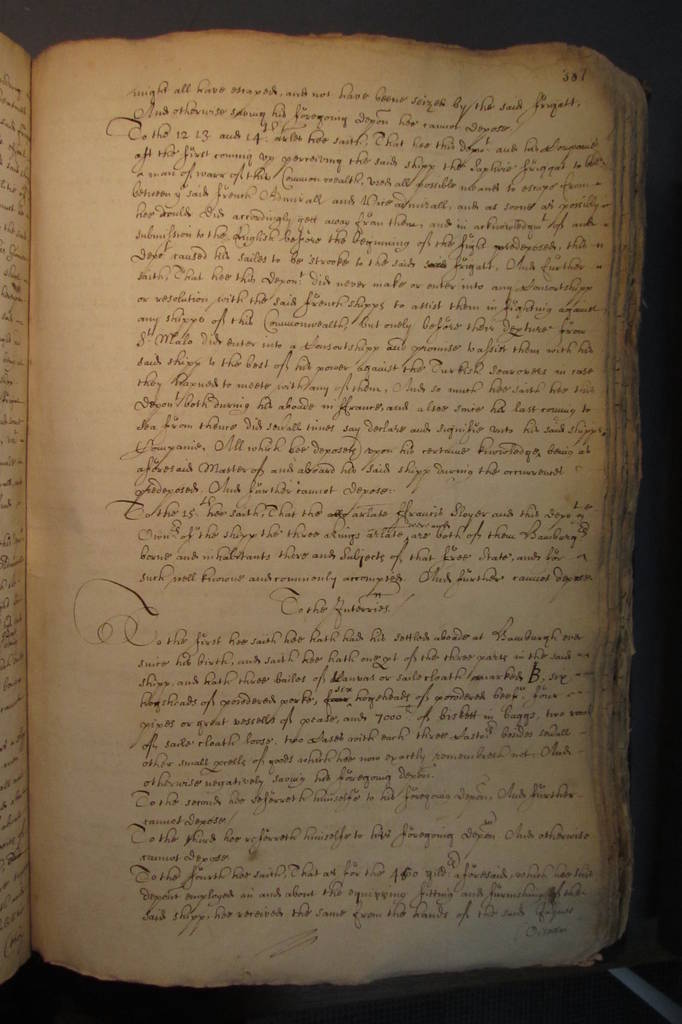 387
might all have escaped, and not have beene seized by the said frigatt,
And otherwise saving his foregoing depon hee cannot depose./
To the 12 13 and 14th arlet hee saith, That hee this depot and his Companie
att the first coming up perceiving the said shipp the Saphire friggat to bee
a man of warr of this Commonwealth, used all possible meanes to escape from
betweene ye said french Admirall and Vice admirall, and as soone as possibly
hee could did accordingly gett away from them, and in acknowledgmt of and
submission to the English before the beginning of the fight predeposed, this
depot caused his sailes to be strooke to the said frigatt, And further
saith, That hee this deponet did never make or enter into any Consortshipp
or resolution with the said french shipps to assist them in fighting against
any shipps of this Commonwealth, but onely before their depture from
St Malo did enter into a Consortshipp and promise to assist them with his
said shipp to the best of his power against the Turkish in case
they happned to meete with any of them, And so much hee saith hee this
deponet both during his aboade in ffrance, and alsoe since his last coming to
sea from thence did severall times say declare and signifie unto his said shipps
Companie, All which hee deposeth upon his certaine knowledge, being as
aforesaid Master of and aboard his said shipp during the occurrences
predeposed. And further cannot depose:
To the 15th hee saith, That the arlate ffrancis and this depot
Owners of the shipp the three Kings arlate, are both of them Hamburgers
borne and inhabitants there and subjects of that free State, and for
such well knowne and commonly accompted. And further cannot depose
To the Interries./
To the first hee saith hee hath had his settled aboade at Hamburgh ever
since his birth, and saith hee hath one pt of the three parts in the said
shipp, and hath three bailes of Canvas or saile cloath marked B, six
hogsheads of powdered porke, six hogsheads of powdered beef, four
pipes or great vessells of pease, and 7000 li of biskett in baggs, two
of saile cloath loose, two with each three besides severall
other small pcells of goods which hee now exactly remembreth not. And
otherwise negatively saving his foregoing depon.
To the second hee referreth himselfe to his foregoing depon. And further
cannot depose./
To the third hee referreth himselfe to his foregoing depon And otherwise
cannot depose
To the fourth hee saith, That as for the aforesaid, which hee this
deponet employed in and about the equipping fitting and furnishing of the
said shipp, hee received the same from the hands of the said